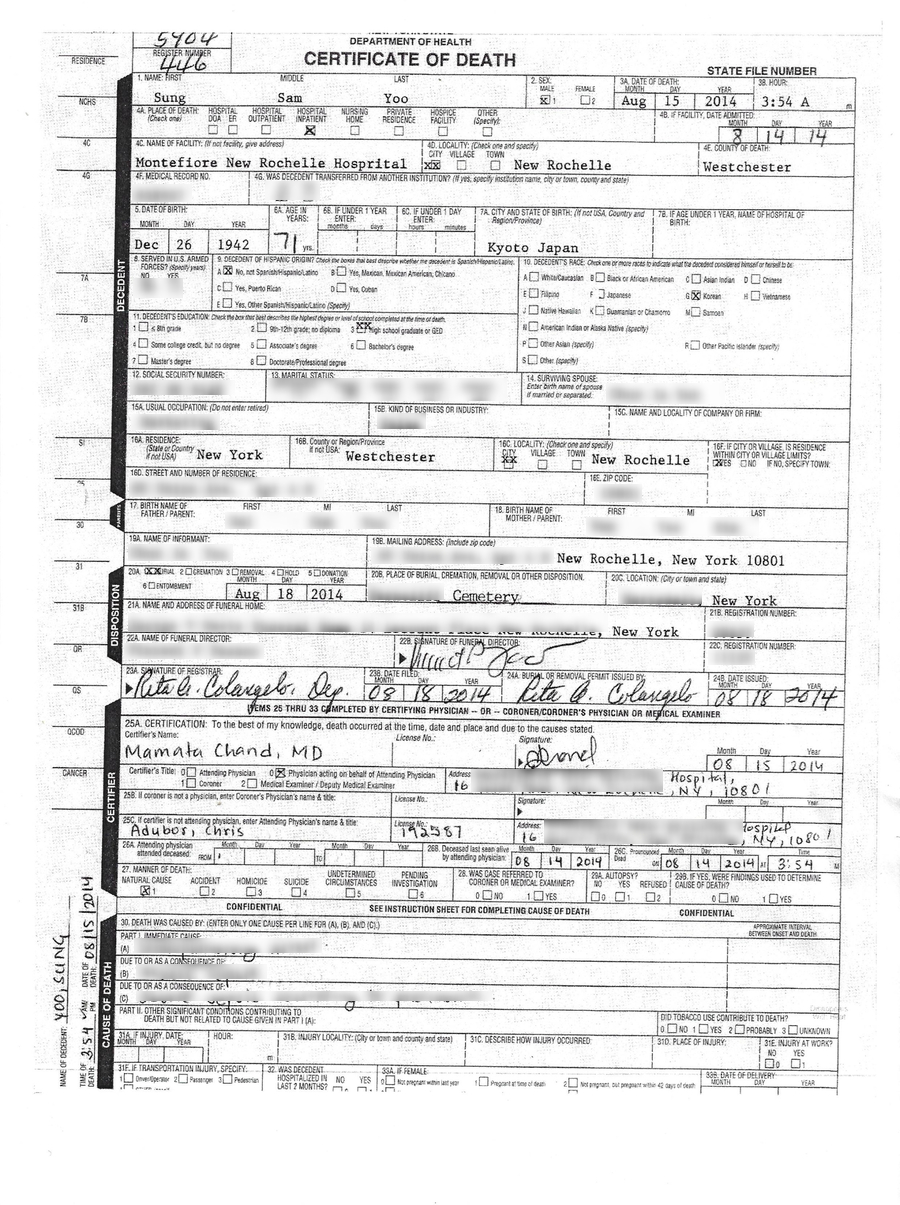 5404
REGISTER NUMBER
446
DEPARTMENT OF HEALTH
CERTIFICATE OF DEATH
STATE FILE NUMBER
RESIDENCE
1. NAME: FIRST MIDDLE LAST
Sung Sam Yoo
2. SEX: MALE FEMALE
X 1 2
3A. DATE OF DEATH: MONTH DAY YEAR
Aug 15 2014
3B. HOUR:
3:54 A m
NCHS
4A. PLACE OF DEATH: (Check one)
HOSPITAL DOA ER
HOSPITAL OUTPATIENT
HOSPITAL INPATIENT X
NURSING HOME
PRIVATE RESIDENCE
HOSPICE FACILITY
OTHER (Specify):
4B. IF FACILITY, DATE ADMITTED: MONTH DAY YEAR
8 14 14
4C
4C. NAME OF FACILITY: (If not facility, give address)
Montefiore New Rochelle Hosprital
4D. LOCALITY: (Check one and specify)
CITY VILLAGE TOWN
XX New Rochelle
4E. COUNTY OF DEATH:
Westchester
4G
4F. MEDICAL RECORD NO.
4G. WAS DECEDENT TRANSFERRED FROM ANOTHER INSTITUTION? (If yes, specify institution name, city or town, county and state)
5. DATE OF BIRTH: MONTH DAY YEAR
Dec 26 1942
6A. AGE IN YEARS:
71 yrs.
6B. IF UNDER 1 YEAR ENTER: months days
6C. IF UNDER 1 DAY ENTER: hours minutes
7A. CITY AND STATE OF BIRTH: (If not USA, Country and Region/Province)
Kyoto Japan
7B. IF AGE UNDER 1 YEAR, NAME OF HOSPITAL OF BIRTH:
DECEDENT
7A
8. SERVED IN U.S. ARMED FORCES? (Specify years)
NO YES
9. DECEDENT OF HISPANIC ORIGIN? Check the boxes that best describe whether the decedent is Spanish/Hispanic/Latino.
A X No, not Spanish/Hispanic/Latino B Yes, Mexican, Mexican American, Chicano
C Yes, Puerto Rican D Yes, Cuban
E Yes, Other Spanish/Hispanic/Latino (Specify)
10. DECEDENT'S RACE: Check one or more races to indicate what the decedent considered himself or herself to be.
A White/Caucasian B Black or African American C Asian Indian D Chinese
E Filipino F Japanese G X Korean H Vietnamese
J Native Hawaiian K Guamanian or Chamorro M Samoan
N American Indian or Alaska Native (specify)
P Other Asian (specify) R Other Pacific Islander (specify)
S Other (specify)
7B
11. DECEDENT'S EDUCATION: Check the box that best describes the highest degree or level of school completed at the time of death.
1 ≤ 8th grade 2 9th-12th grade; no diploma 3 XX High school graduate or GED
4 Some college credit, but no degree 5 Associate's degree 6 Bachelor's degree
7 Master's degree 8 Doctorate/Professional degree
12. SOCIAL SECURITY NUMBER:
13. MARITAL STATUS:
14. SURVIVING SPOUSE: Enter birth name of spouse if married or separated.
15A. USUAL OCCUPATION: (Do not enter retired)
15B. KIND OF BUSINESS OR INDUSTRY:
15C. NAME AND LOCALITY OF COMPANY OR FIRM:
SI
16A. RESIDENCE: (State or Country if not USA)
New York
16B. County or Region/Province if not USA:
Westchester
16C. LOCALITY: (Check one and specify)
CITY VILLAGE TOWN
XX New Rochelle
16F. IF CITY OR VILLAGE, IS RESIDENCE WITHIN CITY OR VILLAGE LIMITS?
X YES NO IF NO, SPECIFY TOWN:
16D. STREET AND NUMBER OF RESIDENCE:
16E. ZIP CODE:
PARENTS
30
17. BIRTH NAME OF FATHER / PARENT: FIRST MI LAST
18. BIRTH NAME OF MOTHER / PARENT: FIRST MI LAST
31
19A. NAME OF INFORMANT:
19B. MAILING ADDRESS: (include zip code)
New Rochelle, New York 10801
DISPOSITION
20A. XX BURIAL 2 CREMATION 3 REMOVAL 4 HOLD 5 DONATION
6 ENTOMBMENT MONTH DAY YEAR
Aug 18 2014
20B. PLACE OF BURIAL, CREMATION, REMOVAL OR OTHER DISPOSITION.
Cemetery
20C. LOCATION: (City or town and state)
New York
31B
21A. NAME AND ADDRESS OF FUNERAL HOME:
New Rochelle, New York
21B. REGISTRATION NUMBER:
OR
22A. NAME OF FUNERAL DIRECTOR:
22B. SIGNATURE OF FUNERAL DIRECTOR:
22C. REGISTRATION NUMBER:
QS
23A. SIGNATURE OF REGISTRAR:
Rita A. Colangelo, Dep.
23B. DATE FILED: MONTH DAY YEAR
08 18 2014
24A. BURIAL OR REMOVAL PERMIT ISSUED BY:
Rita A. Colangelo
24B. DATE ISSUED: MONTH DAY YEAR
08 18 2014
ITEMS 25 THRU 33 COMPLETED BY CERTIFYING PHYSICIAN -- OR -- CORONER/CORONER'S PHYSICIAN OR MEDICAL EXAMINER
QCOD
25A. CERTIFICATION: To the best of my knowledge, death occurred at the time, date and place and due to the causes stated.
Certifier's Name: License No.: Signature:
Mamata Chand, MD
Month Day Year
08 15 2014
CANCER
CERTIFIER
Certifier's Title: 0 Attending Physician 0 X Physician acting on behalf of Attending Physician
1 Coroner 2 Medical Examiner / Deputy Medical Examiner
Address
16 Hospital,
NY, 10801
25B. If coroner is not a physician, enter Coroner's Physician's name & title: License No.: Signature: Month Day Year
25C. If certifier is not attending physician, enter Attending Physician's name & title: License No.: Address:
Adubor, Chris 192587 16 Hospital
NY, 10801
26A. Attending physician attended deceased: FROM Month Day Year TO Month Day Year
26B. Deceased last seen alive by attending physician: Month Day Year
08 14 2014
26C. Pronounced Dead ON Month Day Year AT Time
08 14 2014 3:54 M
27. MANNER OF DEATH:
NATURAL CAUSE ACCIDENT HOMICIDE SUICIDE UNDETERMINED CIRCUMSTANCES PENDING INVESTIGATION
X 1 2 3 4 5 6
28. WAS CASE REFERRED TO CORONER OR MEDICAL EXAMINER?
0 NO 1 YES
29A. AUTOPSY? NO YES REFUSED
0 1 2
29B. IF YES, WERE FINDINGS USED TO DETERMINE CAUSE OF DEATH?
0 NO 1 YES
CONFIDENTIAL SEE INSTRUCTION SHEET FOR COMPLETING CAUSE OF DEATH CONFIDENTIAL
CAUSE OF DEATH
30. DEATH WAS CAUSED BY: (ENTER ONLY ONE CAUSE PER LINE FOR (A), (B), AND (C).)
APPROXIMATE INTERVAL BETWEEN ONSET AND DEATH
PART I. IMMEDIATE CAUSE:
(A)
DUE TO OR AS A CONSEQUENCE OF:
(B)
DUE TO OR AS A CONSEQUENCE OF:
(C)
PART II. OTHER SIGNIFICANT CONDITIONS CONTRIBUTING TO DEATH BUT NOT RELATED TO CAUSE GIVEN IN PART I (A):
DID TOBACCO USE CONTRIBUTE TO DEATH?
0 NO 1 YES 2 PROBABLY 3 UNKNOWN
31A. IF INJURY, DATE: MONTH DAY YEAR HOUR: m
31B. INJURY LOCALITY: (City or town and county and state)
31C. DESCRIBE HOW INJURY OCCURRED:
31D. PLACE OF INJURY:
31E. INJURY AT WORK? NO YES
0 1
31F. IF TRANSPORTATION INJURY, SPECIFY:
1 Driver/Operator 2 Passenger 3 Pedestrian
32. WAS DECEDENT HOSPITALIZED IN LAST 2 MONTHS? NO YES
33A. IF FEMALE:
0 Not pregnant within last year 1 Pregnant at time of death 2 Not pregnant, but pregnant within 42 days of death
33B. DATE OF DELIVERY: MONTH DAY YEAR
NAME OF DECEDENT: YOO, SUNG
TIME OF DEATH: 3:54 AM PM
DATE OF DEATH: 08/15/2014